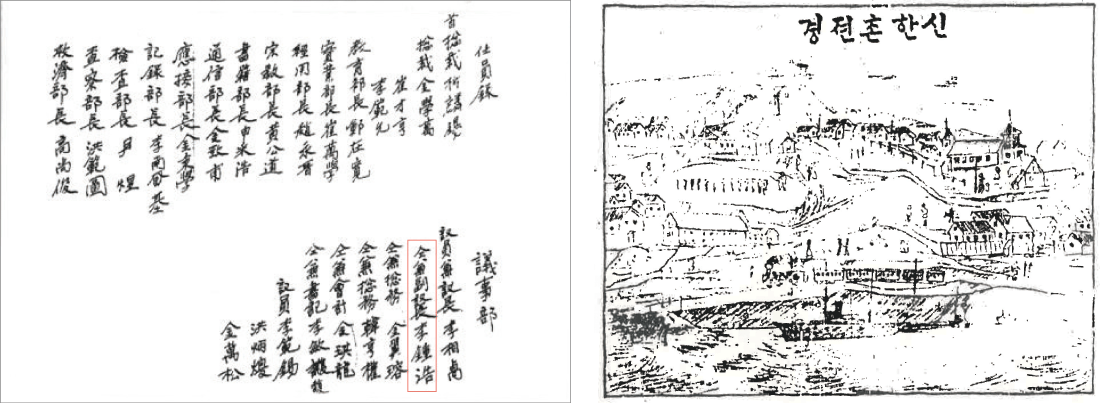 任員錄
首摠裁 柳麟錫
摠裁 金學萬
崔才亨
李範允
敎育部長 鄭在寬
實業部長 崔萬學
經用部長 趙永晋
宗敎部長 黃公道
書籍部長 申采浩
通信部長 金致甫
應接部長 金秉學
記錄部長 李南基
檢查部長 尹
查察部長 洪範圖
救濟部長 高尚俊
議事部
議員兼議長 李相卨
仝兼副議長 李鍾浩
仝兼總務 金翼瑢
仝兼總務 韓亨權
仝兼會計 金琪龍
仝兼書記 李敏馥
議員 李範錫
洪炳煥
金萬松
신한촌젼경